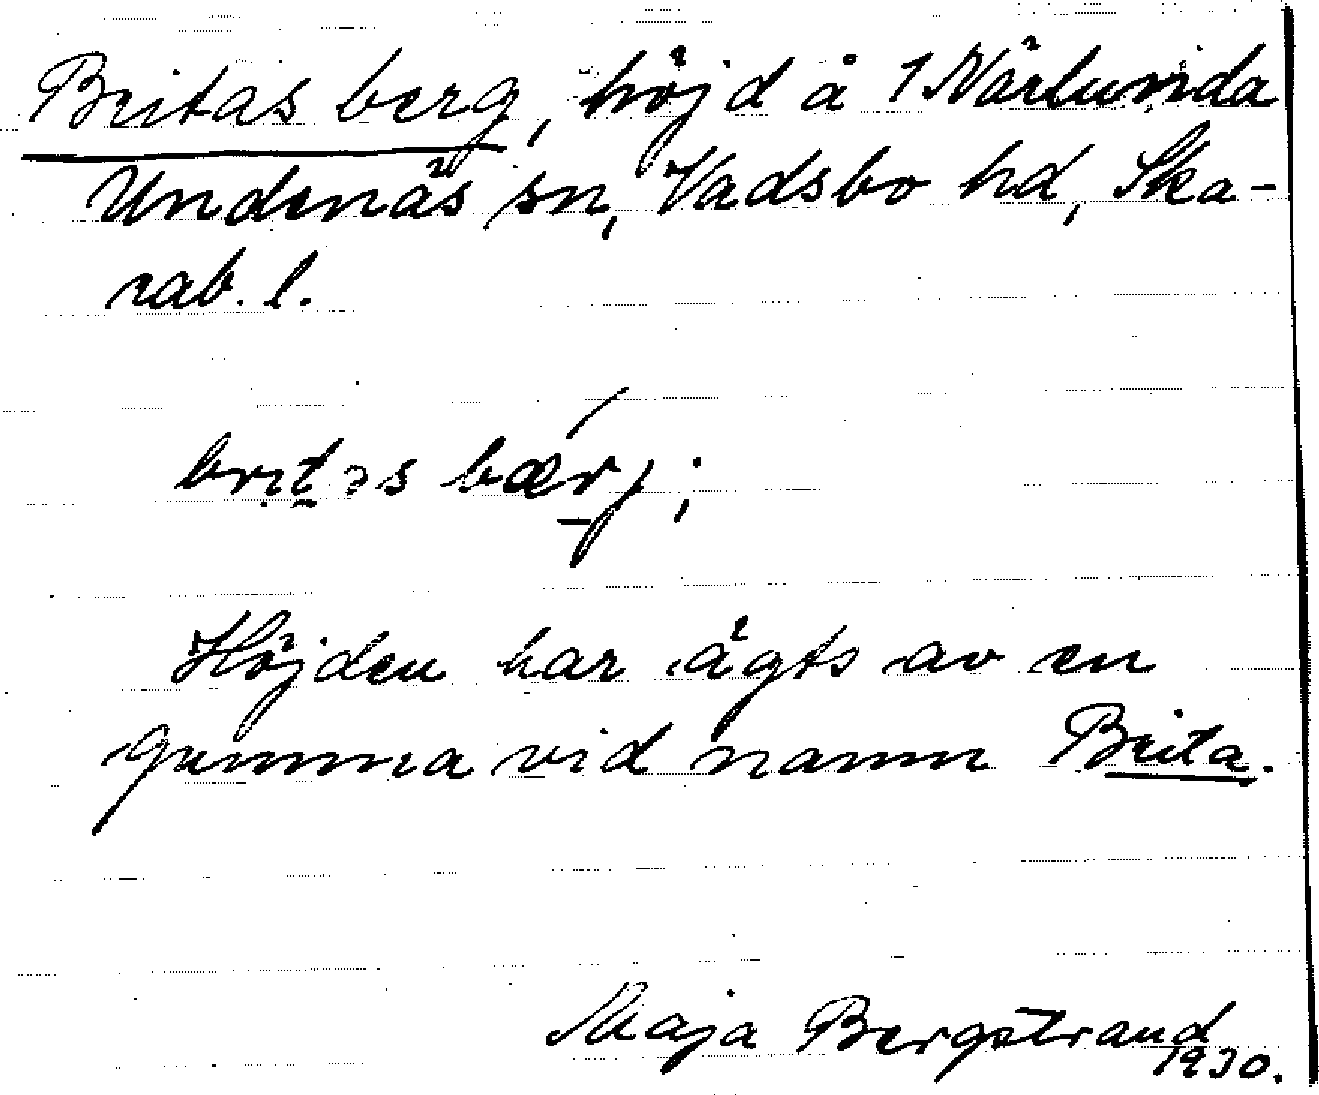 Britas berg, höjd å 1 Nårlunda
Undenäs sn, Vadsbo hd, Ska-
rab. l.
britəs bærj;
Höjden har ägts av en
gumma vid namn Brita.
Maja Bergstrand
1930.